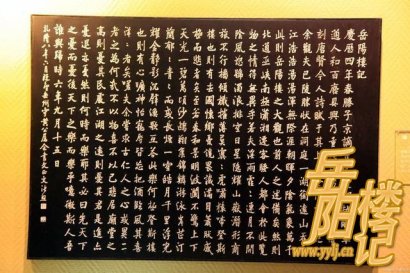 岳陽樓記
慶歷四年春滕子京謫
道人和百廢具興乃重
刻唐賢今人詩賦于其
余觀夫巴陵勝狀在洞庭一湖銜遠山
江浩浩湯湯橫無際涯朝暉夕陰氣象萬千
此則岳陽樓之大觀也前人之述備矣然則
北通巫峽南極瀟湘遷客騷人多會于此覽
物之情得無異乎若夫霪雨霏霏連月不開
陰風怒號濁浪排空日星隱耀山岳潛形商
旅不行檣傾楫摧薄暮冥冥虎嘯猿啼登斯
樓也則有去國懷鄉憂讒畏譏滿目蕭然感
極而悲者矣至若春和景明波瀾不驚上下
天光一碧萬頃沙鷗翔集錦鱗游泳岸芷汀
蘭郁郁青青而或長煙一空皓月千里浮光
耀金靜影沉璧漁歌互答此樂何極登斯樓
也則有心曠神怡寵辱皆忘把酒臨風其喜
洋洋者矣嗟夫予嘗求古仁人之心或異二
者之為何哉不以物喜不以己悲居廟堂之
高則憂其民處江湖之遠則憂其君是進亦
憂退亦憂然則何時而樂耶其必曰先天下
之憂而憂後天下之樂而樂乎噫微斯人吾
誰與歸時六年九月十五日
乾隆八年
岳阳楼记
www.yylj.cn